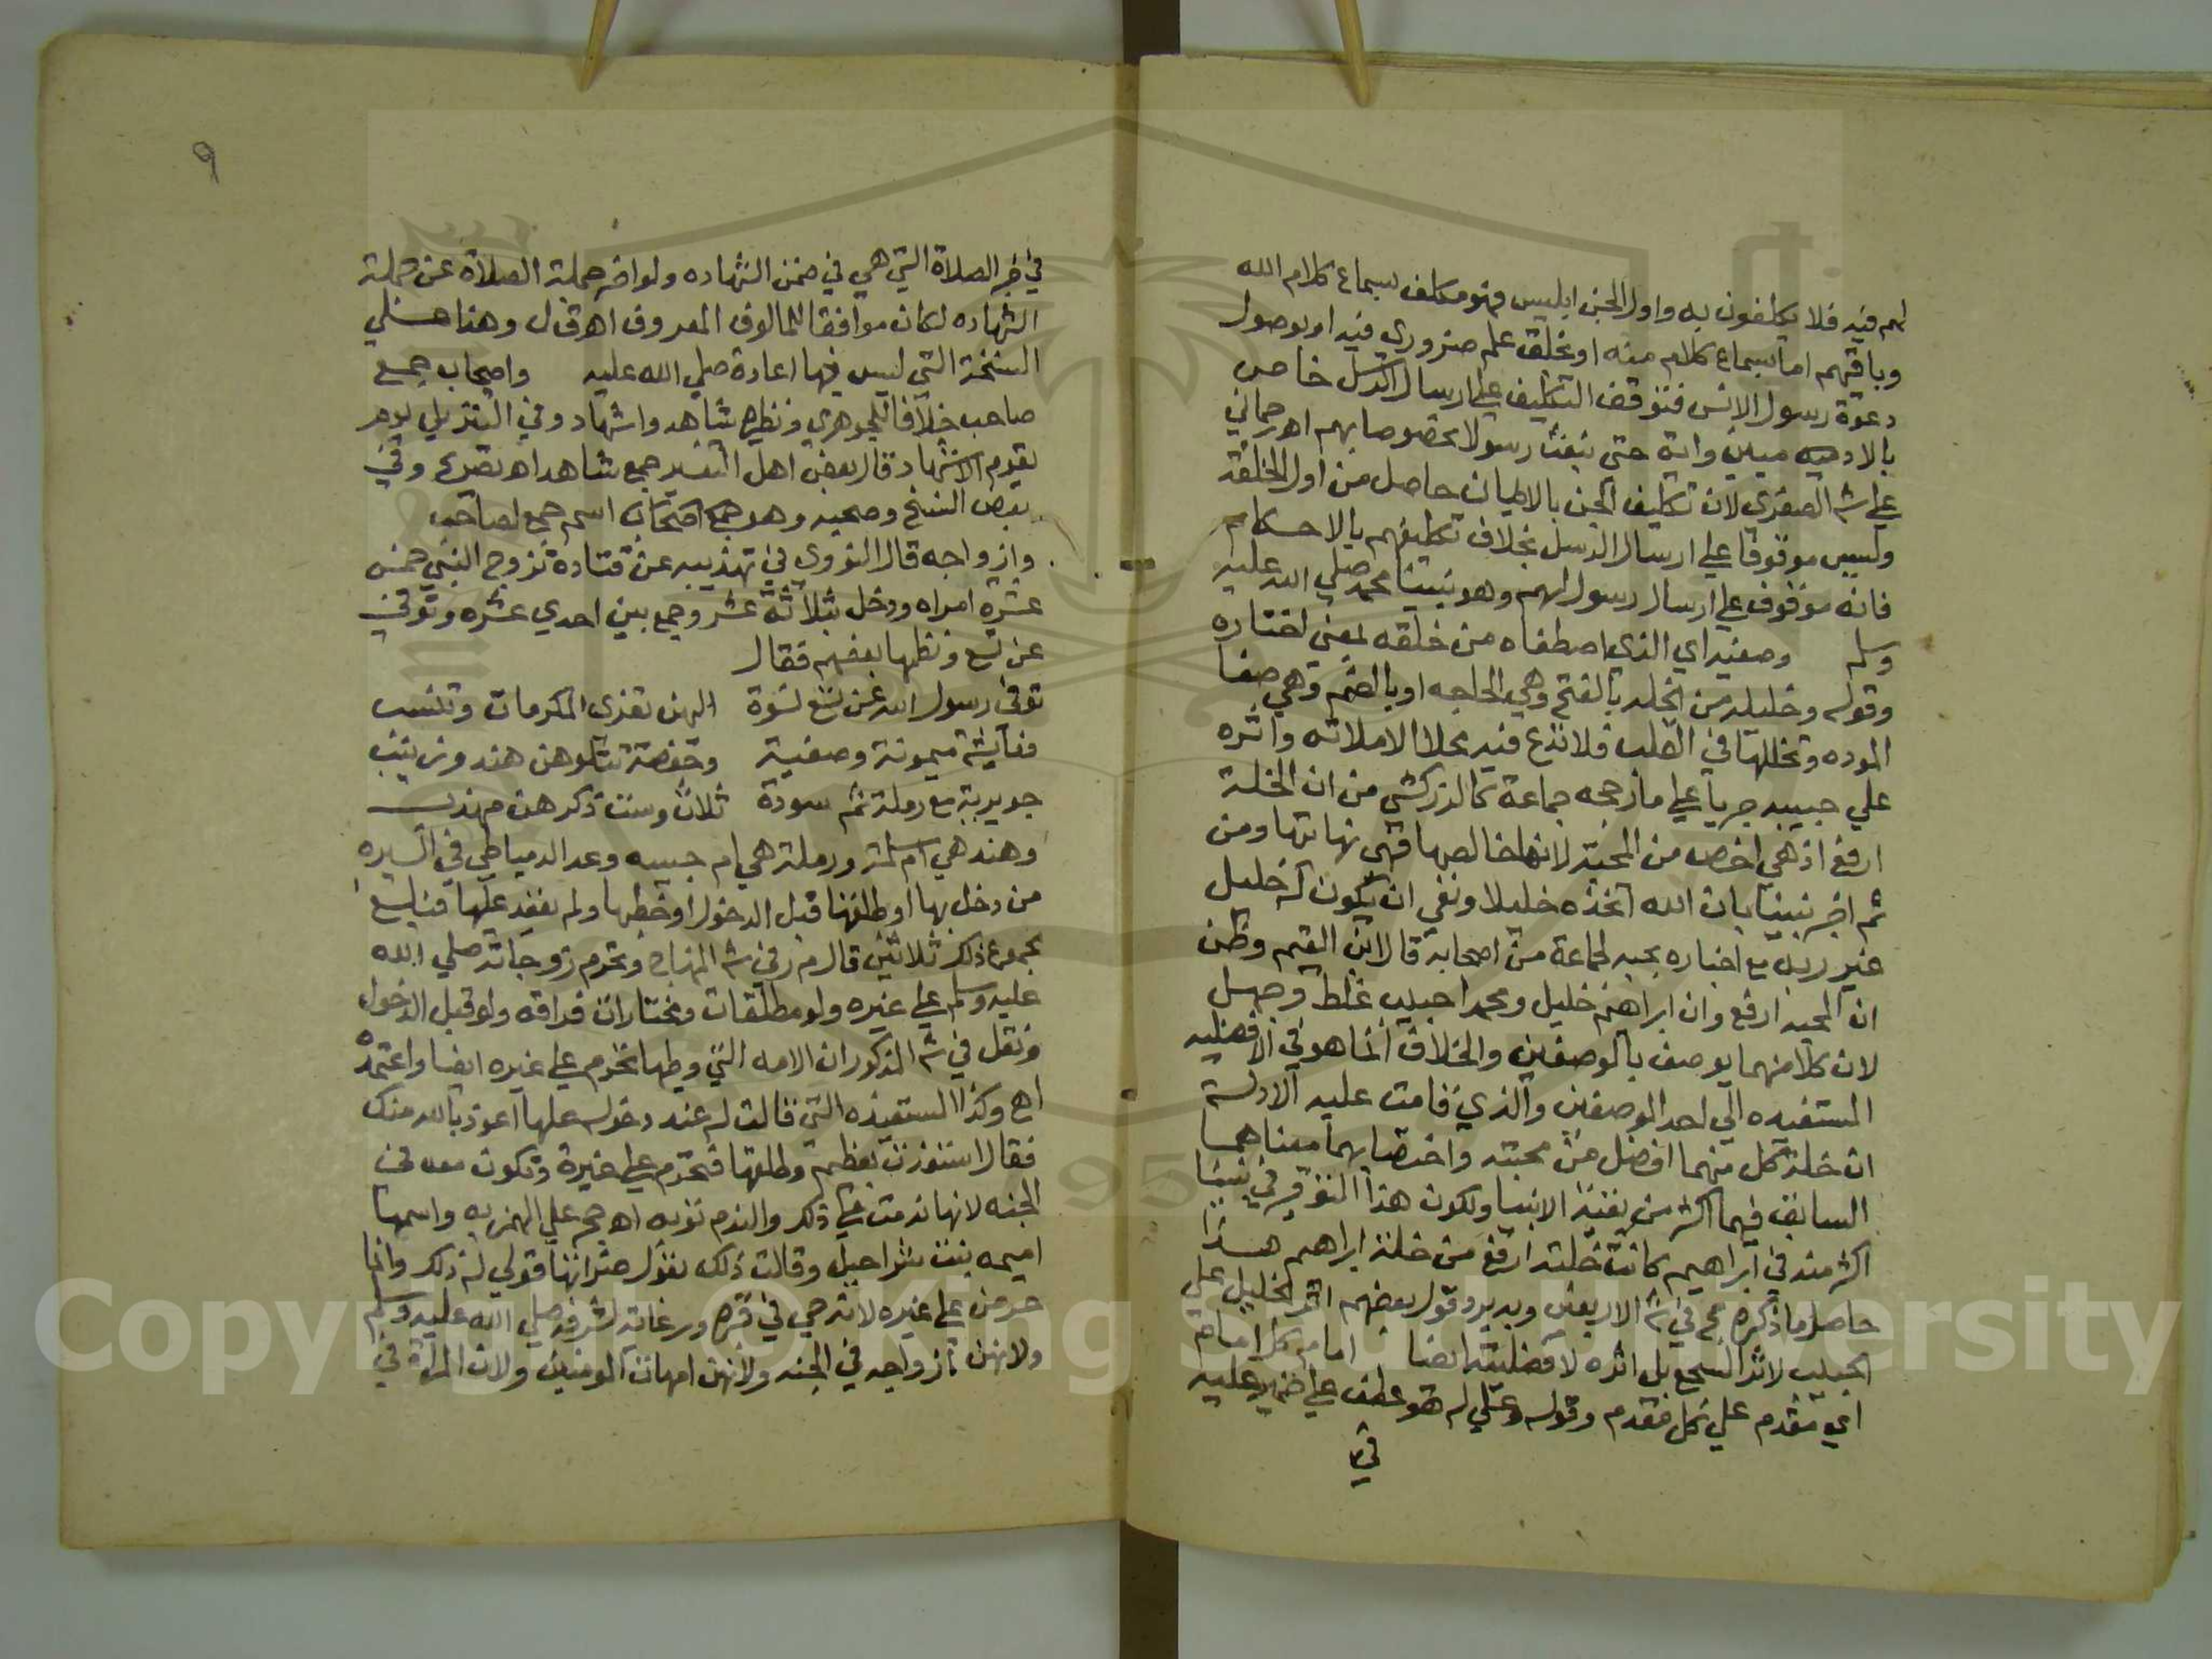 لهم فيه فلا يكلفون به واول الجن ابليس فهو مكلف بسماع كلام الله
وباقيهم اما بسماع كلام منه او بخلق علم ضروري فيه او بوصول
دعوة رسول الانس فتوقف التكليف على ارسال الرسل خاص
بالادميين واية حتى نبعث رسولا مخصوصا بهم اهر حماني
علي شر الصغرى لان تكليف الجن بالايمان حاصل من اول الخلقة
وليس موقوفا علي ارسال الرسل بخلاف تكليفهم بالاحكام
فانه موقوف علي ارسال رسول لهم وهو نبينا محمد صلي الله عليه
وسلم وصفيه اي الذي اصطفاه من خلقه بمعني اختاره
وقوله وخليله من الخلة بالفتح وهي الحاجه او بالضم وهي صفا
الموده وتخللها في القلب فلا تدع فيه محلا الا ملاته واثره
علي حبيبه جريا علي ما رجحه جماعة كالزركشي من ان الخلة
ارفع اذ هي اخص من المحبة لانها خالصها فهي نهايتها ومن
ثم اخبر نبينا بان الله اتخذه خليلا ونفي ان يكون له خليل
غير ربه مع اخباره بحبه لجماعة من اصحابه قال ابن القيم وظن
ان المحبه ارفع وان ابراهيم خليل ومحمدا حبيب غلط وجهل
لان كلا منهما يوصف بالوصفين والخلاف انما هو في الافضليه
المستفيده الي احد الوصفين والذي قامت عليه الادلة
ان خلة كل منهما افضل من محبته واختصا بهما معناهما
السابق فيهما اكثر من بقية الانبيا ولكون هذا التوفر في نبينا
اكثر منه في ابراهيم كانت خلته ارفع من خلة ابراهيم هذا
حاصل ما ذكره حج في شر الاربعين وبه يرد قول بعضهم اثر الخليل علي
الحبيب لاثر السجع بل اثره لافضليته ايضا امام كل امام
اي مقدم علي كل مقدم وقوله وعلي اله هو عطف علي ضمير عليه
في
٩
في خبر الصلاة التي هي في ضمن الشهاده ولو اخر جملة الصلاة عن جملة
الشهاده لكان موافقا للمالوف المعروف اهر قال وهذا علي
النسخة التي ليس فيها اعادة صلي الله عليه واصحاب جمع
صاحب خلافا للجوهري ونظيره شاهد واشهاد وفي التنزيل يوم
يقوم الاشهاد قال بعض اهل التفسير جمع شاهد اهر تصريح وفي
بعض النسخ وصحبه وهو جمع اصحاب اسم جمع لصاحب
وازواجه قال النووي في تهذيبه عن قتادة تزوج النبي خمس
عشره امراه ودخل بثلاثة عشر وجمع بين احدي عشره وتوفي
عن تسع ونظمها بعضهم فقال
توفي رسول الله عن تسع نسوة اليهن تعزى المكرمات وتنسب
فعايشة ميمونة وصفية وحفصة تتلوهن هند وزينب
جويرية مع رملة ثم سودة ثلاث وست ذكرهن مهذب
وهند هي ام سلمة ورملة هي ام حبيبه وعد الدمياطي في السيره
من دخل بها او طلقها قبل الدخول او خطبها ولم يعقد عليها فبلغ
مجموع ذلك ثلاثين قال م ر في شر المنهاج وتحرم زوجاته صلي الله
عليه وسلم علي غيره ولو مطلقات ومختارات فراقه ولو قبل الدخول
ونقل في شر المذكور ان الامه التي وطيها تحرم علي غيره ايضا واعتمده
اج وكذا المستعيذه التي قالت له عند دخوله عليها اعوذ بالله منك
فقال استعذت بعظيم وطلقها فتحرم علي غيره وتكون معه في
الجنه لانها ندمت علي ذلك والندم توبه اهر حج علي الهمزيه واسمها
اميمه بنت شراحيل وقالت ذلك بقول ضراتها قولي له ذلك وانما
حرمن علي غيره لانه حي في قبره ورعاية لشرفه صلي الله عليه وسلم
ولانهن ازواجه في الجنه ولانهن امهات المومنين ولان المراة في
Copyright © King Saud University